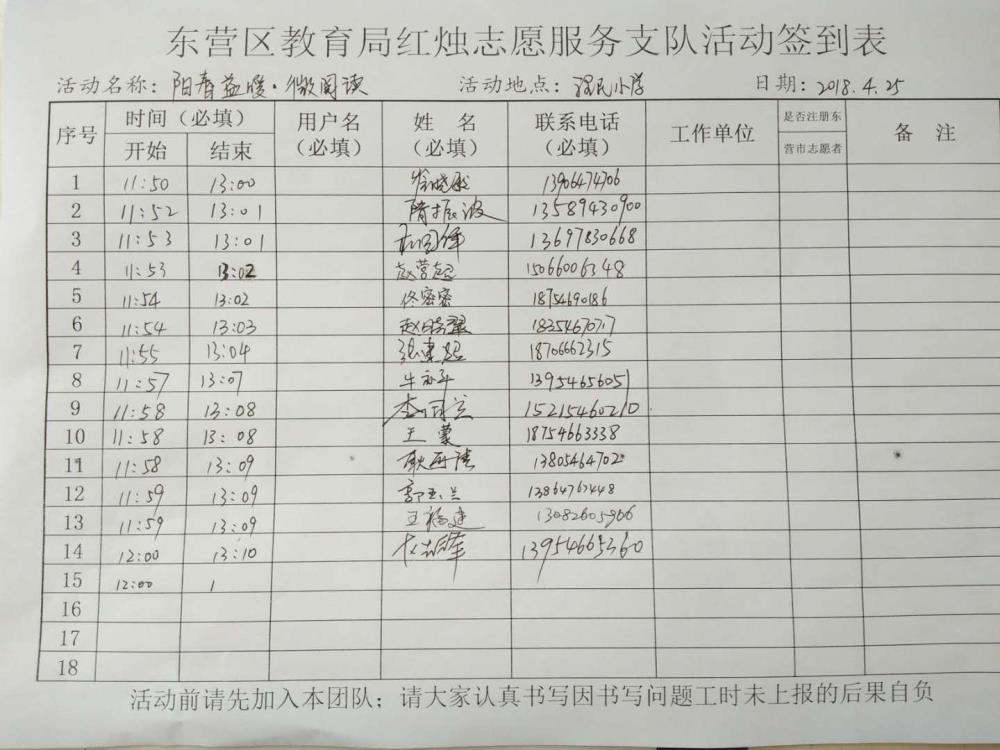 东营区教育局红烛志愿服务支队活动签到表
活动名称：阳春益暖·微阅读 活动地点：小学 日期：2018.4.25
序号 时间（必填） 用户名（必填） 姓名（必填） 联系电话（必填） 工作单位 是否注册东营市志愿者 备注
开始 结束
1 11:50 13:00 13906474706
2 11:52 13:01 隋振波 13589430900
3 11:53 13:01 13697830668
4 11:53 13:02 赵营超 15066006348
5 11:54 13:02 佟密密 18754690186
6 11:54 13:03 18354670717
7 11:55 13:04 张建超 18706662315
8 11:57 13:07 13954656051
9 11:58 13:08 15215460210
10 11:58 13:08 王蒙 18754663338
11 11:58 13:09 13805464702
12 11:59 13:09 郭玉兰 13864767448
13 11:59 13:09 王福建 13082605966
14 12:00 13:10 13954665360
15 12:00 1
16
17
18
活动前请先加入本团队；请大家认真书写因书写问题工时未上报的后果自负